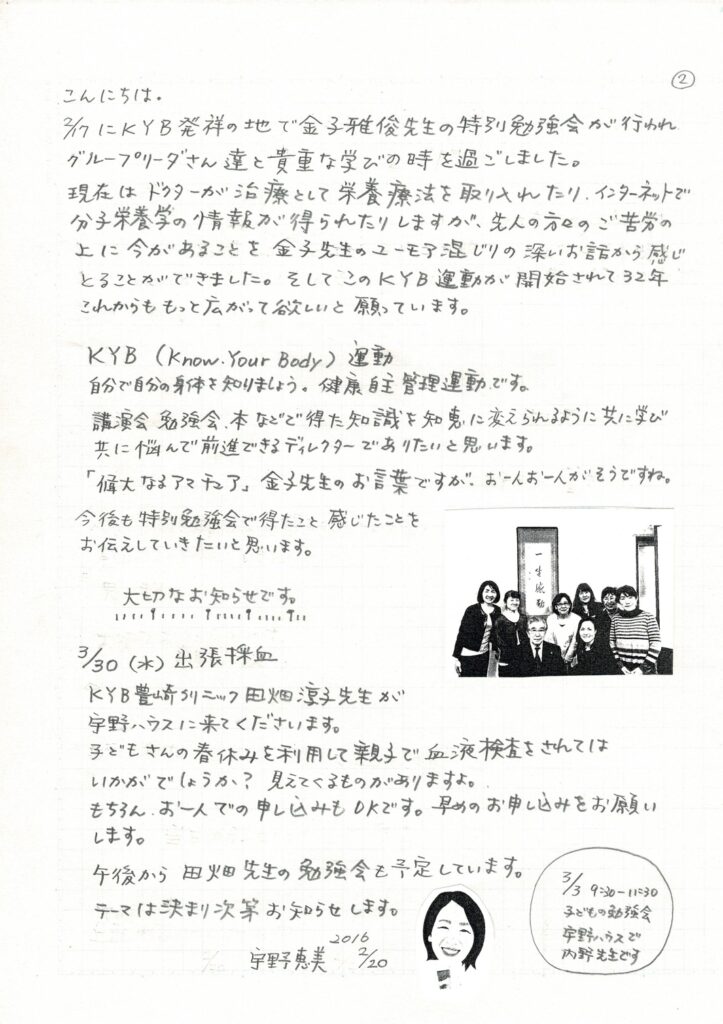 ②
こんにちは。
2/17にKYB発祥の地で金子雅俊先生の特別勉強会が行われ
グループリーダさん達と貴重な学びの時を過ごしました。
現在はドクターが治療として栄養療法を取り入れたり、インターネットで
分子栄養学の情報が得られたりしますが、先人の方々のご苦労の
上に今があることを金子先生のユーモア混じりの深いお話から感じ
とることができました。そしてこのKYB運動が開始されて32年
これからももっと広がって欲しいと願っています。
KYB (Know.Your Body) 運動
自分で自分の身体を知りましょう。健康自主管理運動です。
講演会、勉強会、本などで得た知識を知恵に変えられるように共に学び
共に悩んで前進できるディレクターでありたいと思います。
「偉大なるアマチュア」金子先生のお言葉ですが、お一人お一人がそうですね。
今後も特別勉強会で得たこと感じたことを
お伝えしていきたいと思います。
一生感動
大切なお知らせです。
3/30(水)出張採血
KYB豊崎クリニック田畑淳子先生が
宇野ハウスに来てくださいます。
子どもさんの春休みを利用して親子で血液検査をされては
いかがでしょうか?見えてくるものがありますよ。
もちろん、お一人での申し込みもOKです。早めのお申し込みをお願い
します。
午後から田畑先生の勉強会も予定しています。
テーマは決まり次第お知らせします。
2016
宇野恵美 2/20
3/3 9:30-11:30
子どもの勉強会
宇野ハウスで
内野先生です